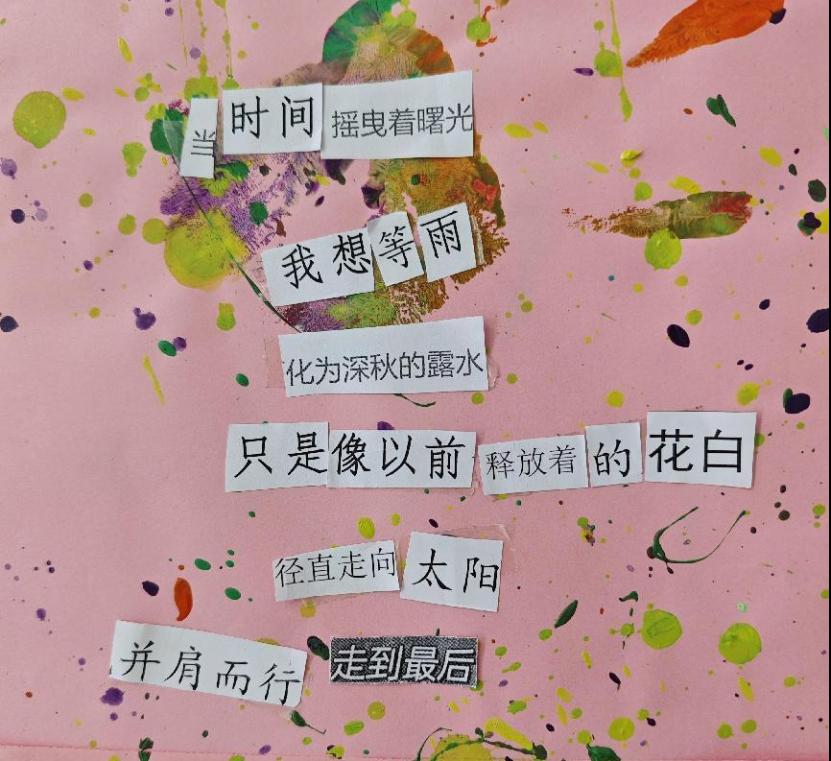 当时间摇曳着曙光
我想等雨
化为深秋的露水
只是像以前释放着的花白
径直走向太阳
并肩而行走到最后